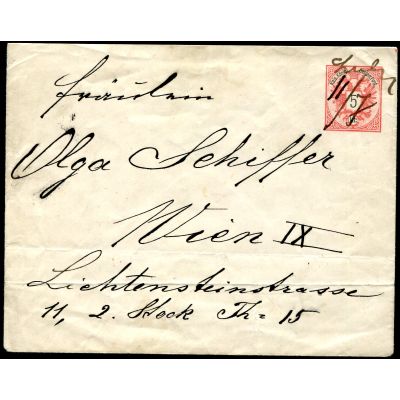 11/7
5
Fräulein
Olga Schiffer
Wien IX
Lichtensteinstrasse
11, 2. Stock Th = 15